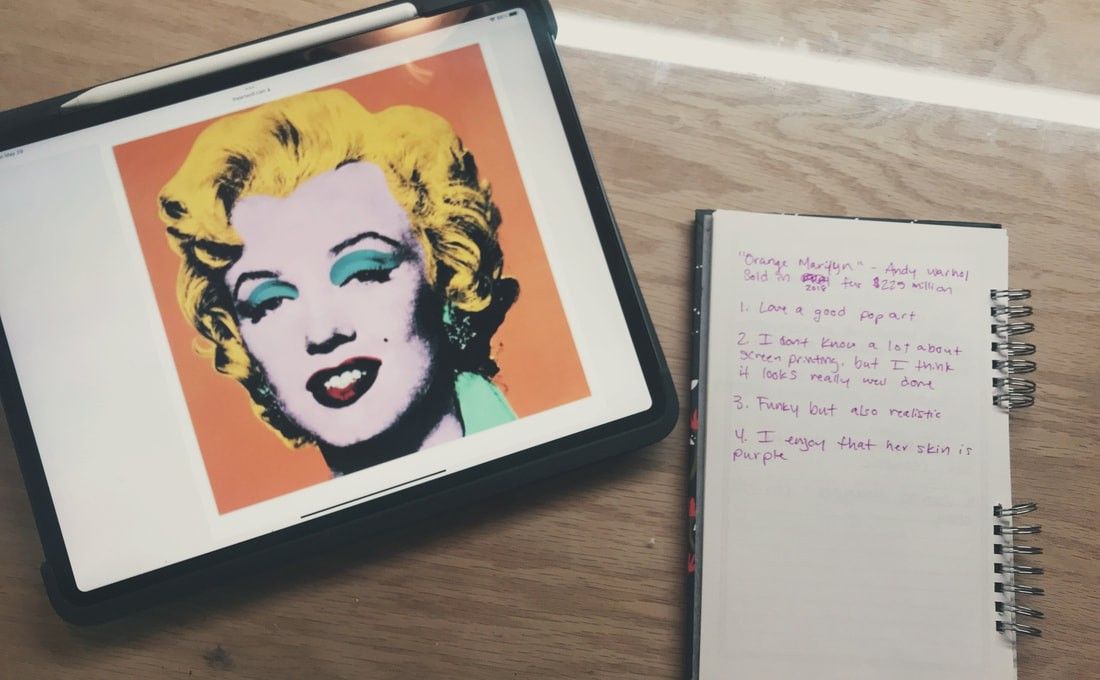 "Orange Marilyn" - Andy Warhol
Sold in 2018 for $225 million
1. Love a good pop art
2. I dont know a lot about
screen printing, but I think
it looks really well done
3. Funky but also realistic
4. I enjoy that her skin is
purple